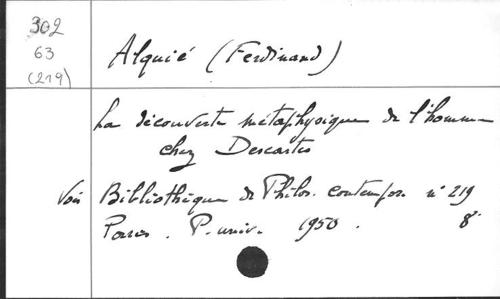 302
63
(219)
Alquié (Ferdinand)
La découverte métaphysique de l'homme
chez Descartes
Voir Bibliothèque de Philos. contempor. n° 219
Paris. P. univ. 1950. 8°